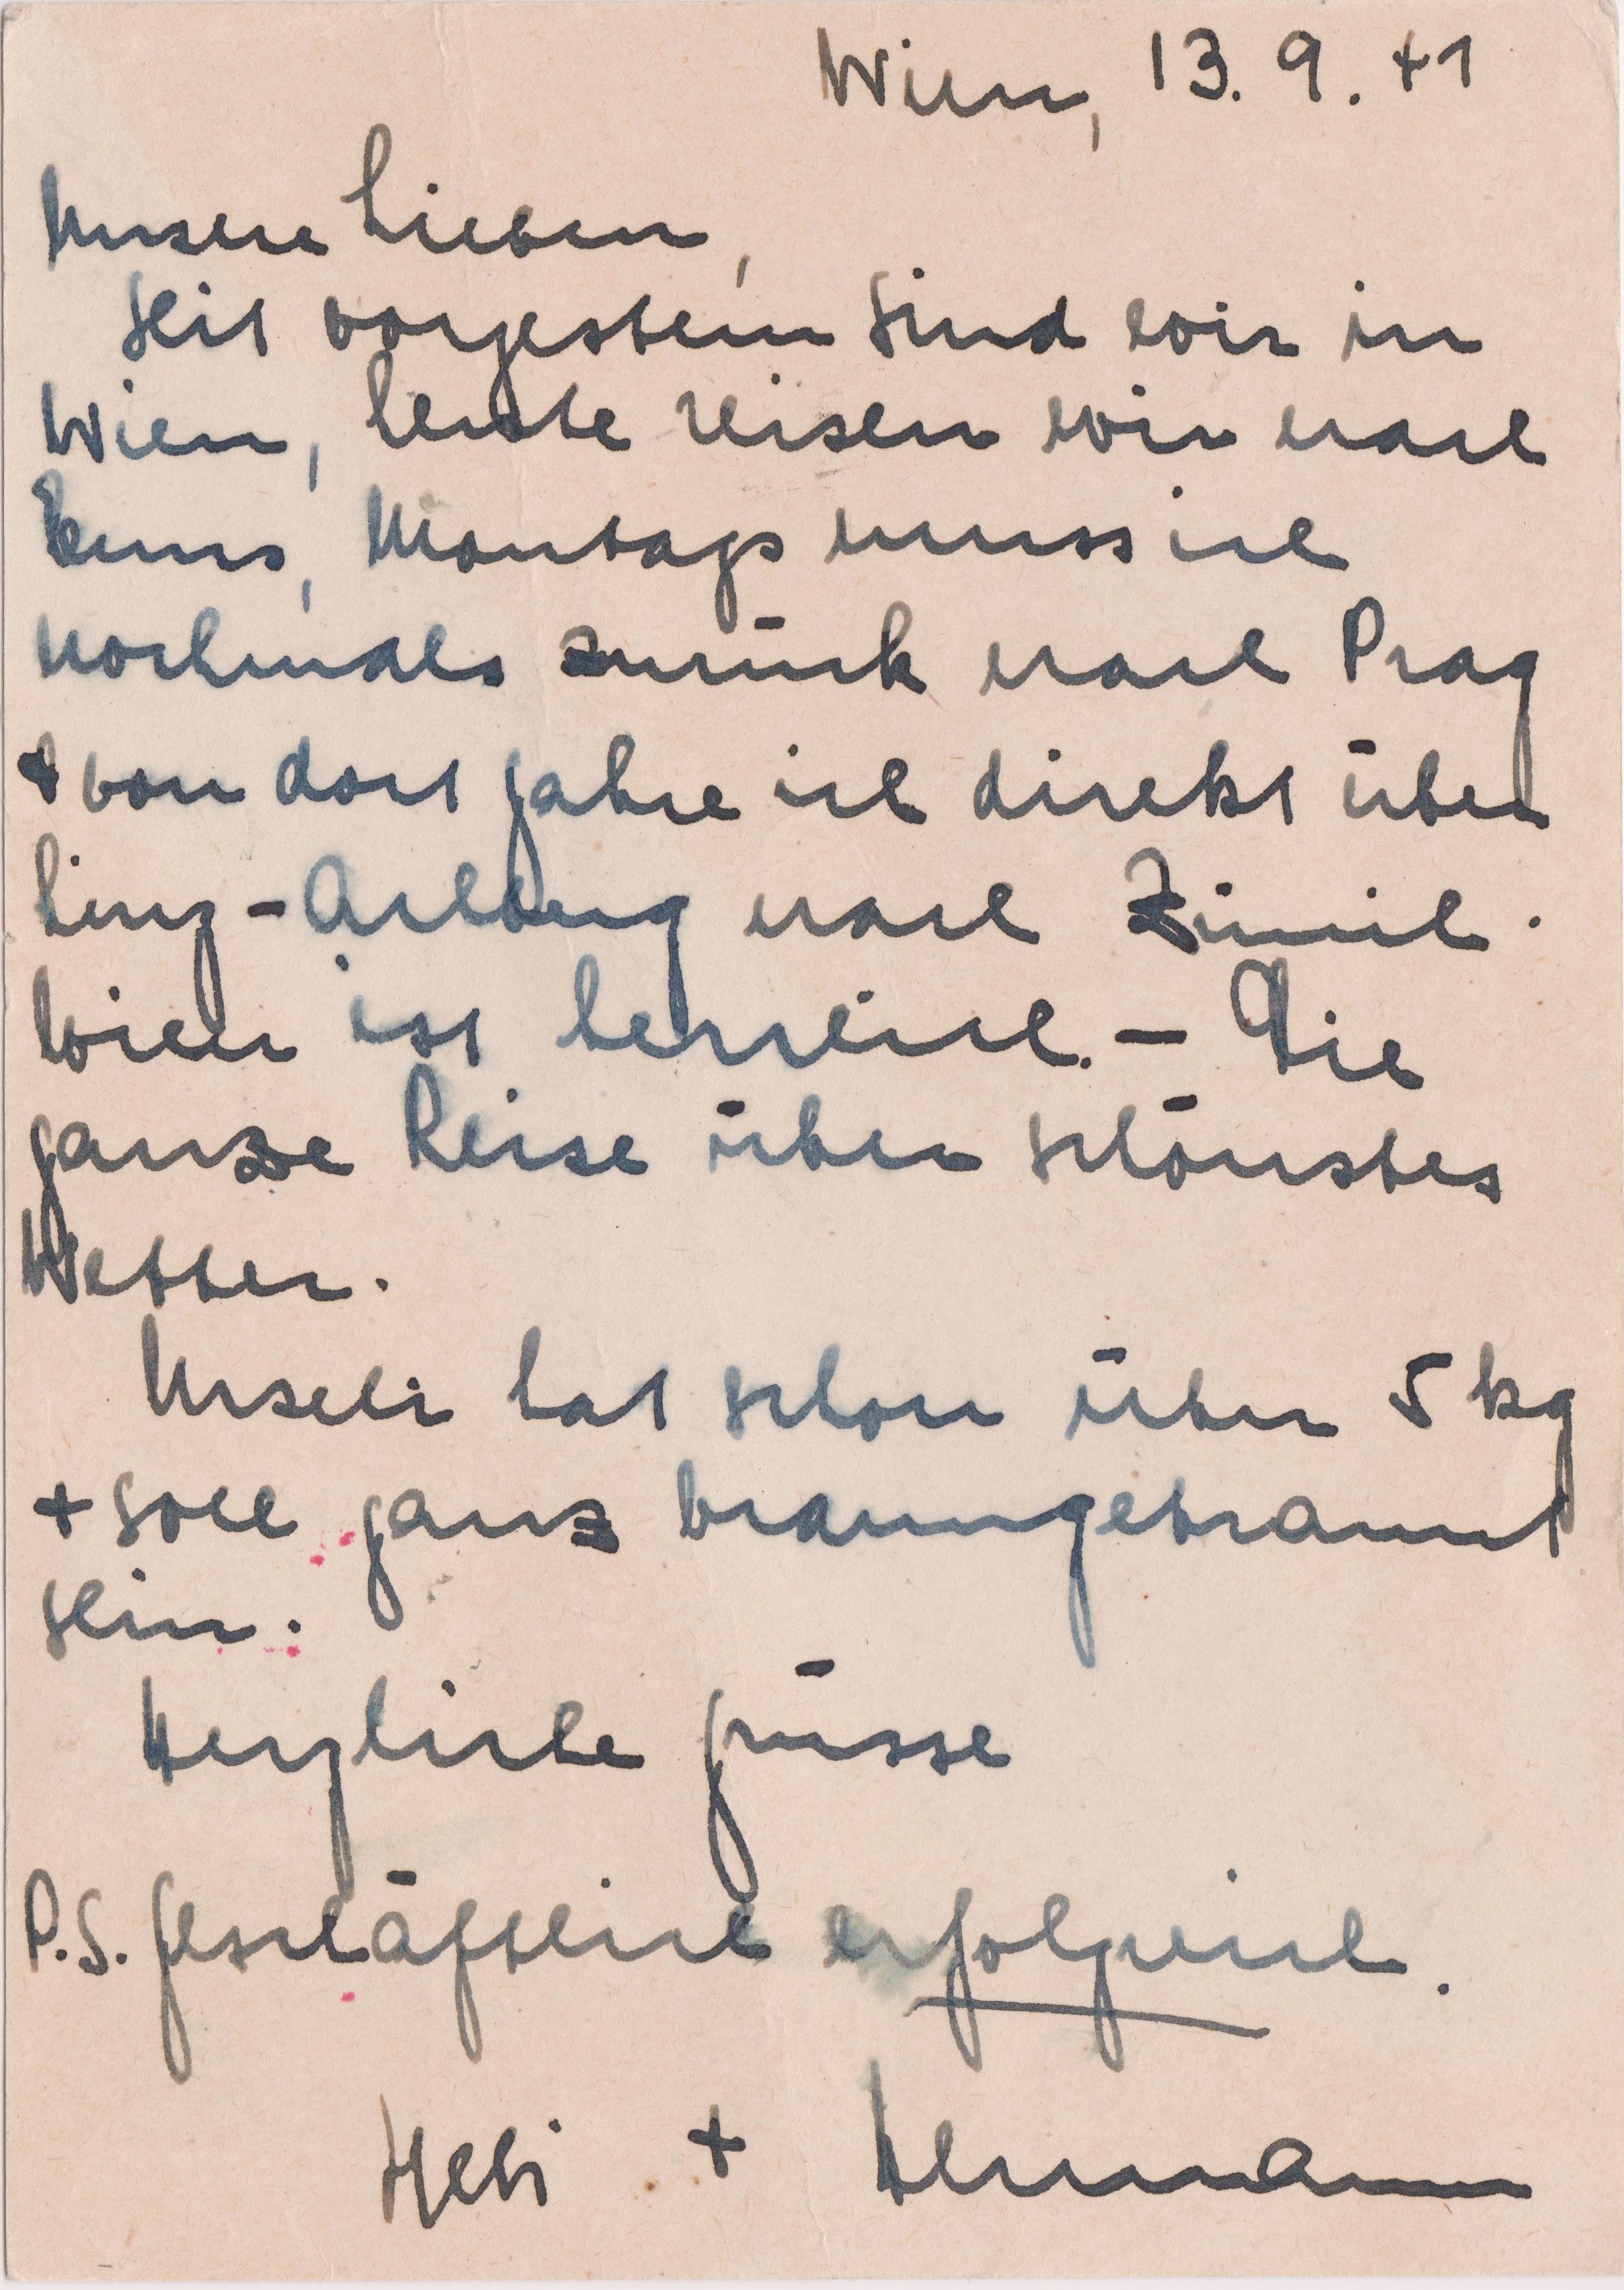 Wien, 13. 9. 41
Unsere Lieben,
Seit vorgestern sind wir in
Wien, heute reisen wir nach
Montags muss ich
nochmals zurück nach Prag
+ von dort fahre ich direkt über
Linz - Arlberg nach Zürich.
Wien ist herrlich. - Die
ganze Reise über schönstes
Wetter.
Urseli hat schon über 5 kg
+ soll ganz braungebrannt
sein.
Herzliche Grüsse
P.S. Geschäftlich erfolgreich.
+ Hermann